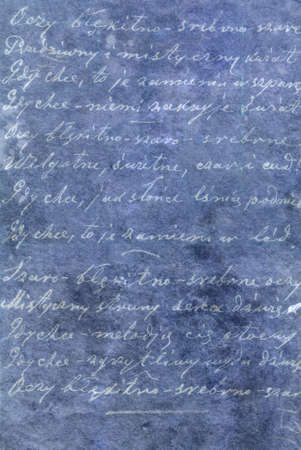 Oczy błękitno-srebrno-szare
Przedziwny i mistyczny kwiat
Gdy chce, to je zamieni w szparę
Gdy chce - niemi zakuje świat
Oczy błękitno-szaro-srebrne
Wilgotne, świetne, czar i cud
Gdy chce, jak słońce lśnią
Gdy chce, to je zamieni w lód
Szaro-błękitno-srebrne oczy
Mistyczny struny serca
Gdy chce - melodją cię otoczy
Gdy chce - zgrzytliwy
Oczy błękitno-srebrno-szare